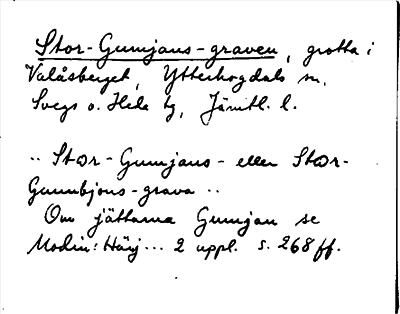 Stor-Gumjans-graven, grotta i
Valåsberget, Ytterhogdals sn,
Svegs o. Hede tg, Jämtl. l.
"Stor-Gumjans- eller Stor-
Gumbjons-grava"
Om jättarna Gumjan se
Modin: Härj... 2 uppl. s. 268 ff.